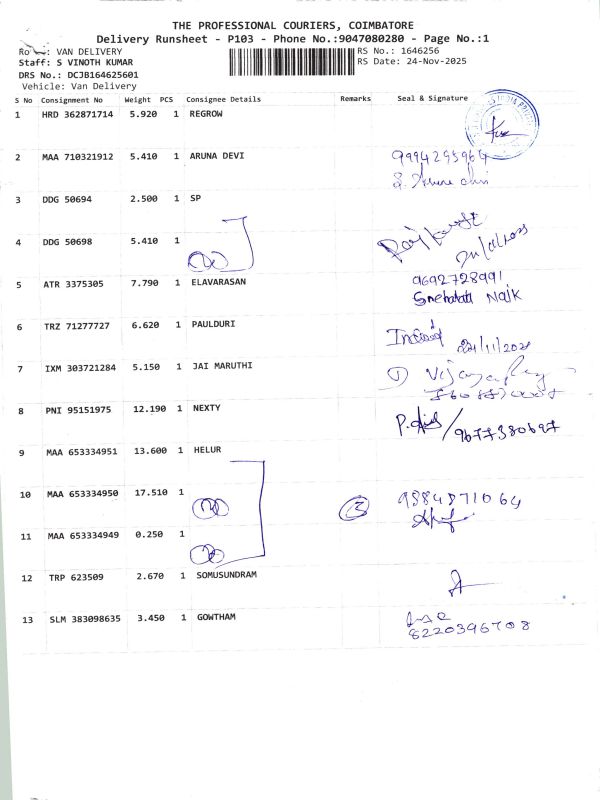 THE PROFESSIONAL COURIERS, COIMBATORE
Delivery Runsheet - P103 - Phone No.:9047080280 - Page No.:1
VAN DELIVERY
RS No.: 1646256
Staff: S VINOTH KUMAR
RS Date: 24-Nov-2025
DRS No.: DCJB164625601
Vehicle: Van Delivery
S No Consignment No Weight PCS Consignee Details Remarks Seal & Signature
1 HRD 362871714 5.920 1 REGROW
2 MAA 710321912 5.410 1 ARUNA DEVI 9994295964
3 DDG 50694 2.500 1 SP
4 DDG 50698 5.410 1
5 ATR 3375305 7.790 1 ELAVARASAN 9692728991
Snehalati Naik
6 TRZ 71277727 6.620 1 PAULDURI
7 IXM 303721284 5.150 1 JAI MARUTHI
8 PNI 95151975 12.190 1 NEXTY 9677380697
9 MAA 653334951 13.600 1 HELUR
10 MAA 653334950 17.510 1 3 9884871064
11 MAA 653334949 0.250 1
12 TRP 623509 2.670 1 SOMUSUNDRAM
13 SLM 383098635 3.450 1 GOWTHAM
8220396708